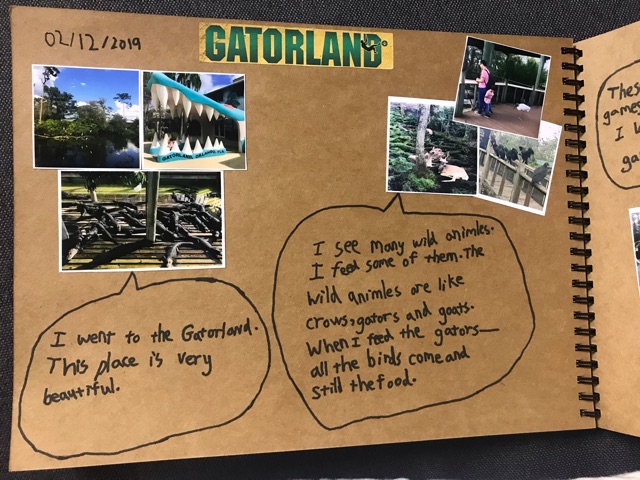 02/12/2019
GATORLAND
GATORLAND, ORLANDO, FLA
I went to the Gatorland.
This place is very
beautiful.
I see many wild animles.
I feed some of them. The
wild animles are like
crows, gators and goats.
When I feed the gators—
all the birds come and
still the food.
These
games
I w
ga